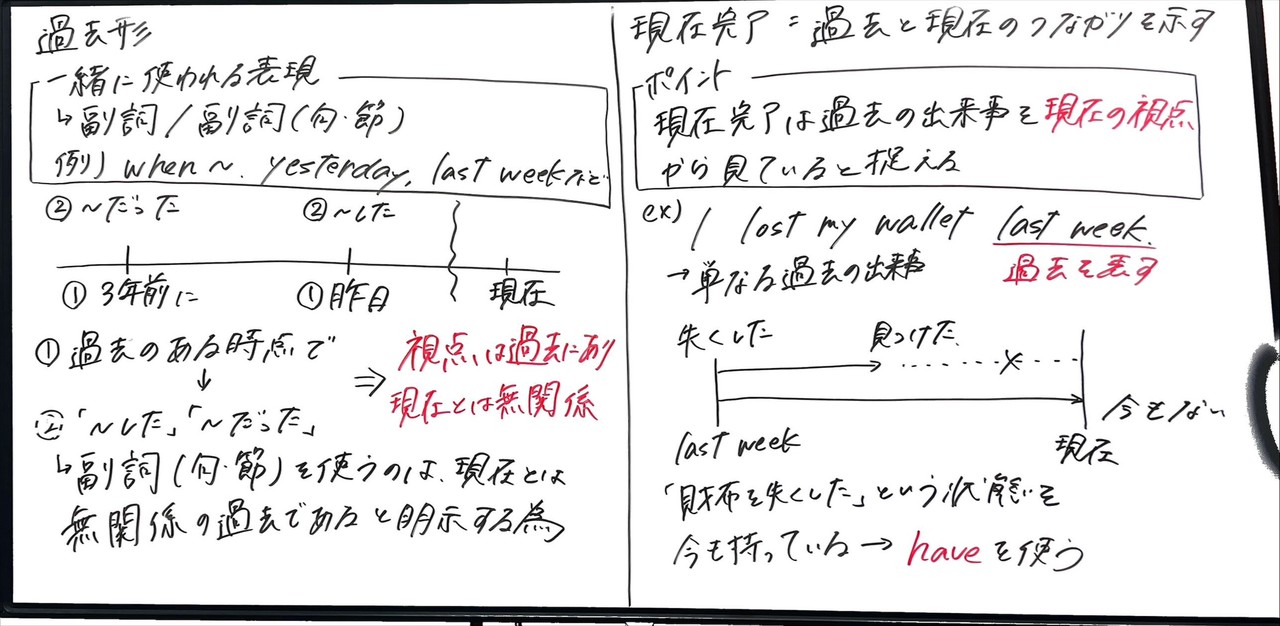 過去形
一緒に使われる表現
↳副詞/副詞(句・節)
例) when ~. yesterday, last weekなど
②~だった
②~した
①3年前に
①昨日
現在
①過去のある時点で
↓
②「~した」「~だった」
⇒ 視点は過去にあり
現在とは無関係
↳副詞(句・節)を使うのは、現在とは
無関係の過去であると明示する為
現在完了=過去と現在のつながりを示す
ポイント
現在完了は過去の出来事を現在の視点
から見ていると捉える
ex) I lost my wallet last week.
→単なる過去の出来事
過去を表す
失くした
見つけた
×
今もない
last week
現在
「財布を失くした」という状態を
今も持っている→haveを使う